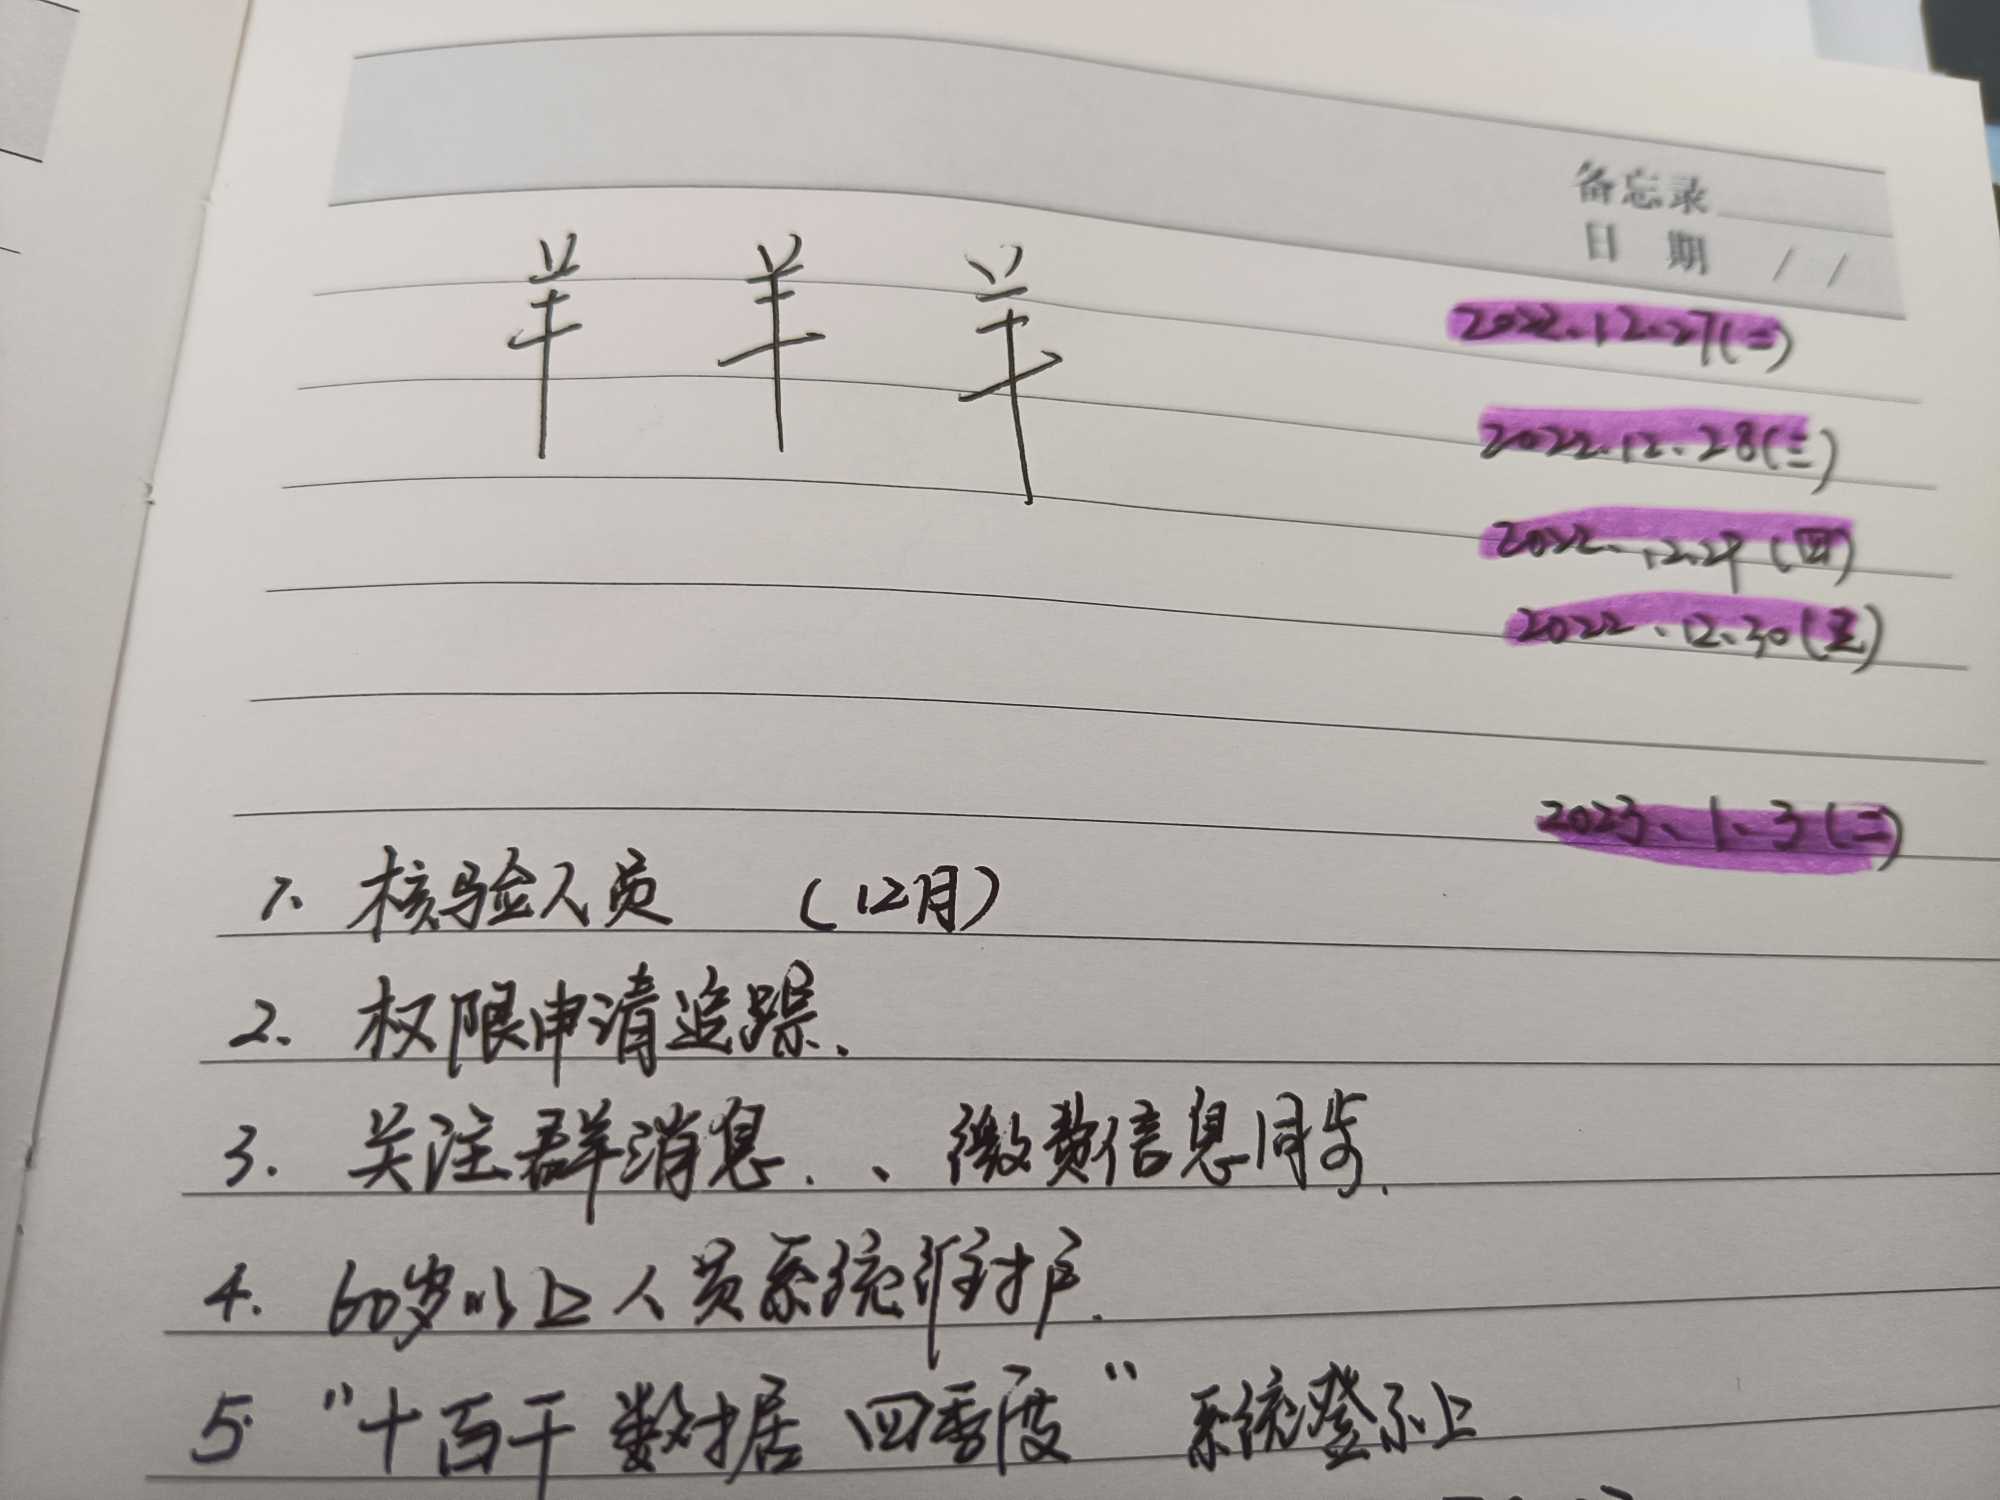 备忘录
日 期 / /
羊 羊 羊
2022.12.27(二)
2022.12.28(三)
2022.12.29(四)
2022.12.30(五)
2023.1.3(二)
1. 核验人员 (12月)
2. 权限申请追踪.
3. 关注群消息.、缴费信息同步.
4. 60岁以上人员系统维护.
5. "十百千数据 四季度" 系统登不上